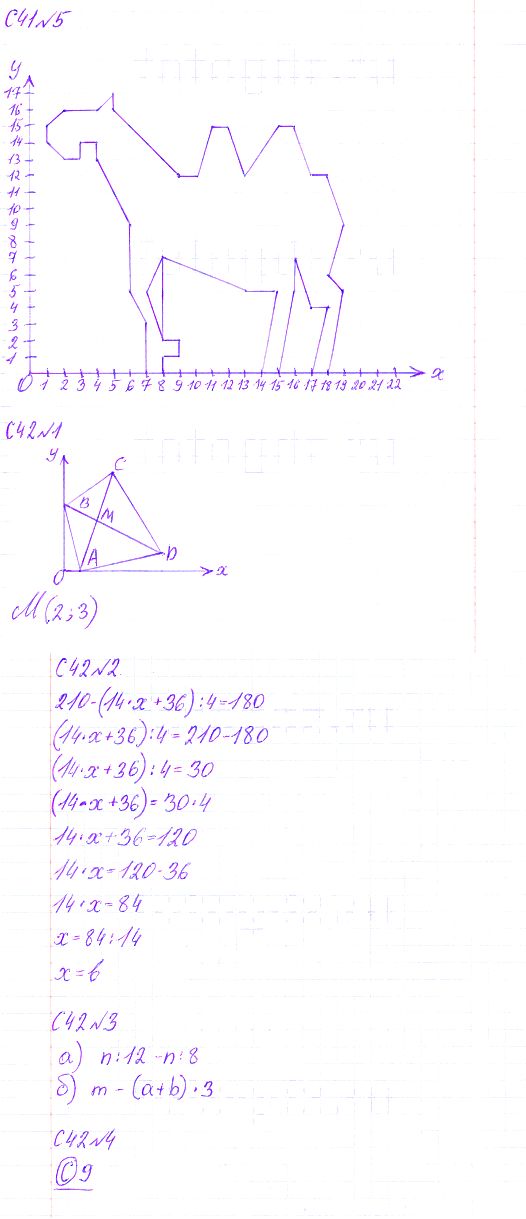 С41№5
y
17
16
15
14
13
12
11
10
9
8
7
6
5
4
3
2
1
0 1 2 3 4 5 6 7 8 9 10 11 12 13 14 15 16 17 18 19 20 21 22 x
С42№1
y
C
B
M
A D
O x
M(2;3)
С42№2
210-(14·x+36):4=180
(14·x+36):4=210-180
(14·x+36):4=30
(14·x+36)=30·4
14·x+36=120
14·x=120-36
14·x=84
x=84:14
x=6
С42№3
а) n:12-n:8
б) m-(a+b)·3
С42№4
С 9